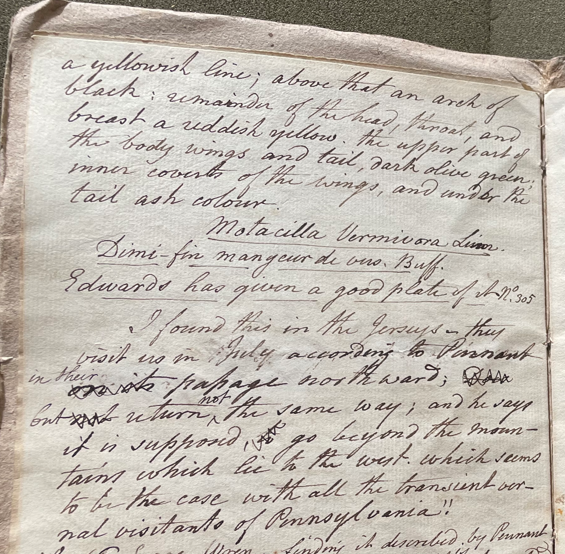 a yellowish line; above that an arch of
black: remainder of the head, throat, and
breast a reddish yellow. the upper part of
the body wings and tail, dark olive green;
inner coverts of the wings, and under the
tail ash colour.
Motacilla Vermivora Linn.
Dimi-fin mangeur de vers. Buff.
Edwards has given a good plate of it No. 305
I found this in the Jerseys – they
visit us in July according to Pennant
in their passage northward;
but return not the same way; and he says
it is supposed, go beyond the moun-
tains which lie to the west. which seems
to be the case with all the transient ver-
nal visitants of Pennsylvania!!
Wren. finding it described by Pennant